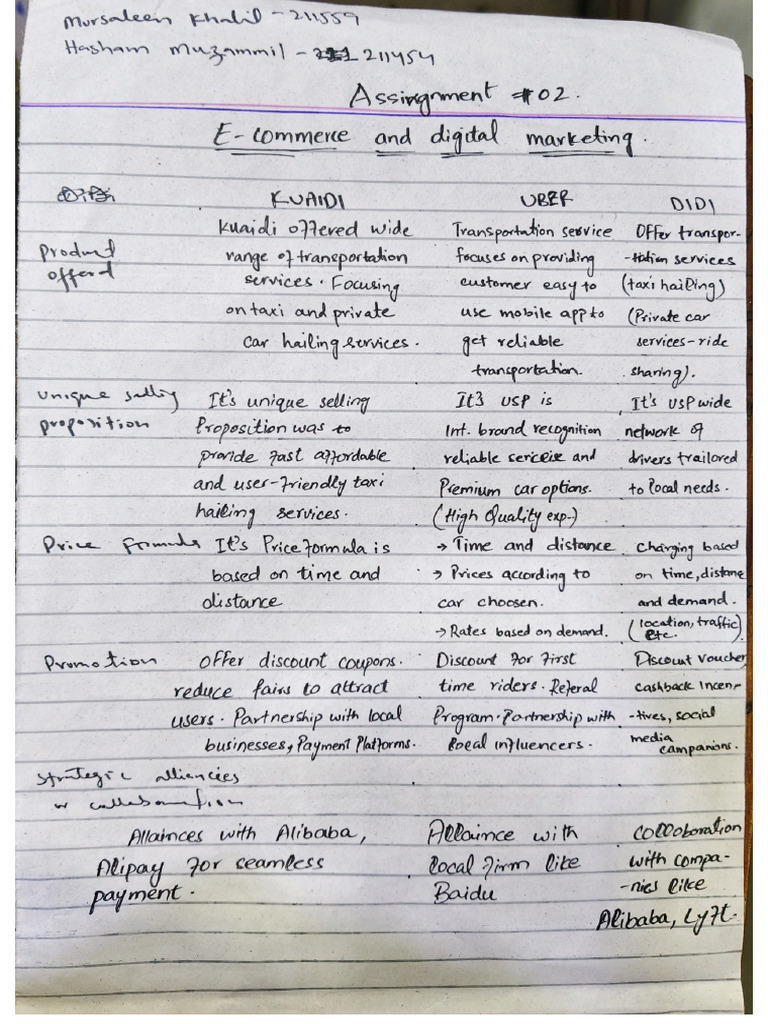 Mursaleen Khalil - 211559
Hasham Muzammil - 211454
Assingnment #02.
E-commerce and digital marketing.
KUAIDI UBER DIDI
Product offerd
Kuaidi offered wide
range of transportation
services. Focusing
on taxi and private
car hailing services.
Transportation service
focuses on providing
customer easy to
use mobile app to
get reliable
transportation.
Offer transpor-
-tation services
(taxi hailing)
(Private car
services-ride
sharing).
Unique selling
proposition
It's unique selling
Proposition was to
provide fast affordable
and user-friendly taxi
hailing services.
It3 USP is
Int. brand recognition
reliable and
Premium car options.
(High Quality exp.)
It's USP wide
network of
drivers trailored
to local needs.
Price formula
It's Price formula is
based on time and
distance
→ Time and distance
→ Prices according to
car choosen.
→ Rates based on demand.
Charging based
on time, distane
and demand.
(location, traffic)
etc.
Promotion
Offer discount coupons.
reduce fairs to attract
users. Partnership with local
businesses, Payment Platforms.
Discount for first
time riders. Referal
Program. Partnership with
local influencers.
Discount voucher,
cashback incen-
-tives, social
media
campanions.
Strategic alliencies
or collaboration
Allainces with Alibaba,
Alipay for seamless
payment.
Allaince with
local firm like
Baidu
Colloboration
with compa-
-nies like
Alibaba, Lyft.